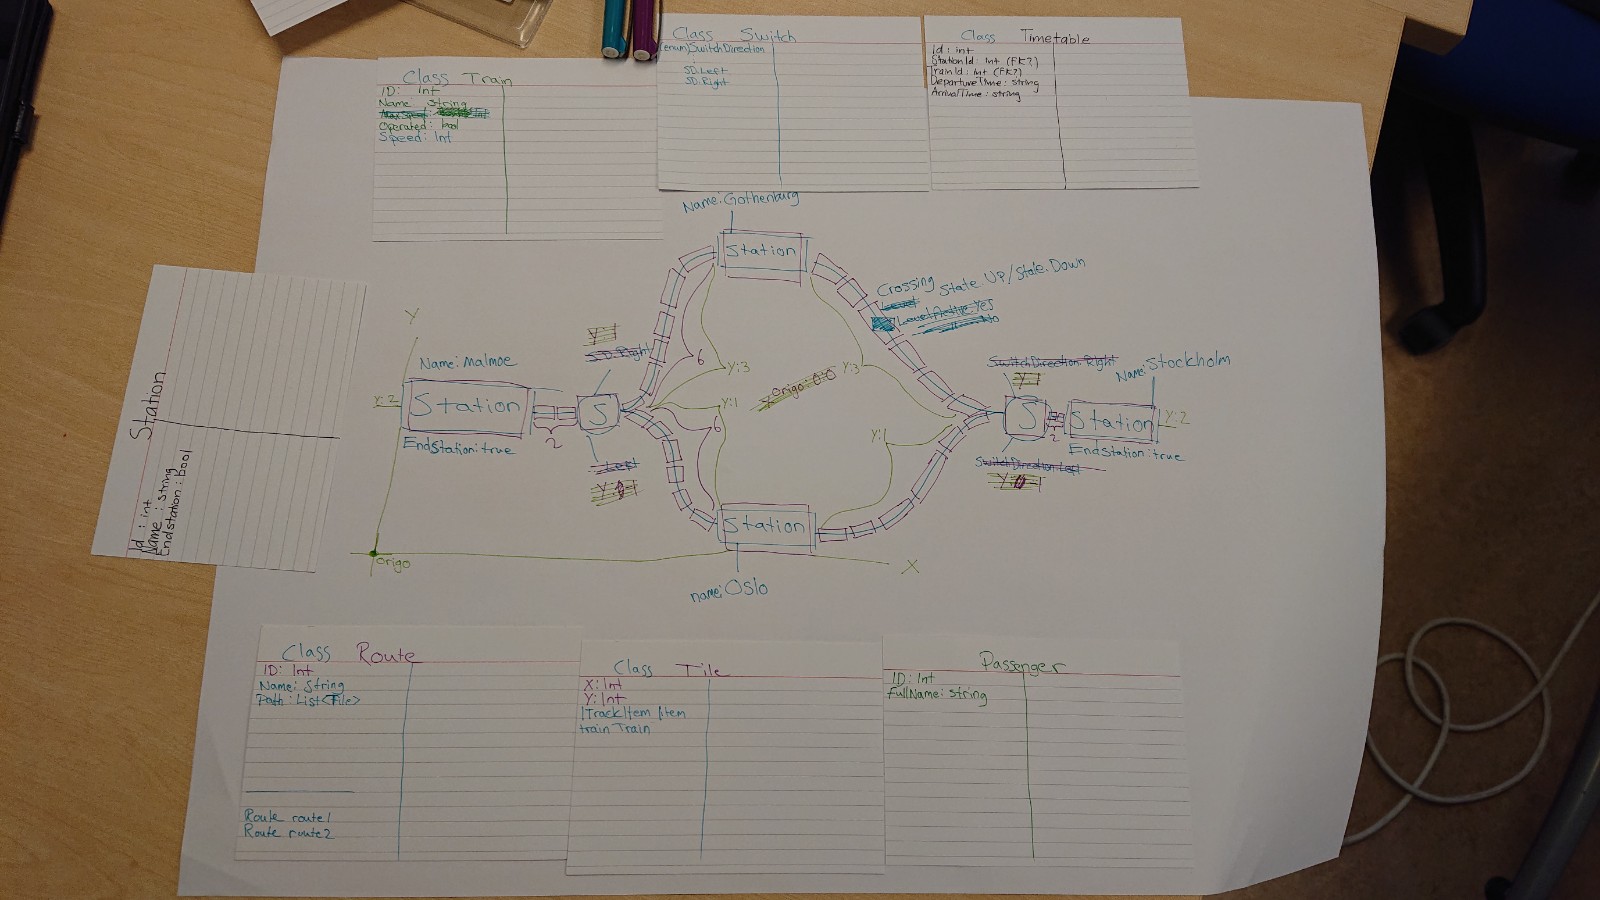 Class Train
ID: Int
Name String
Operated: bool
Speed: Int
Class Switch
(enum)SwitchDirection
SD.Left
SD.Right
Class Timetable
Id: int
StationId: int (FK?)
TrainId: int (FK?)
DepartureTime: string
ArrivalTime: string
Station
Id: int
Name: string
Endstation: bool
Name: Gothenburg
Station
Crossing State UP/State.Down
Level
LevelActive Yes
No
Y
Y:
S.D.Right
Name: Malmoe
Station
EndStation: true
Y:2
2
S
Left
6
Y:3
Y:1
6
Origo: 0:0
Y:3
Y:1
SwitchDirection.Right
Y:
Name: Stockholm
S
Station
Y:2
2
SwitchDirection.Left
EndStation: true
Station
Origo
X
name: Oslo
Class Route
ID: Int
Name: String
Path: List<Tile>
Route route1
Route route2
Class Tile
X: Int
Y: Int
ITrackItem Item
train Train
Passenger
ID: Int
FullName: string